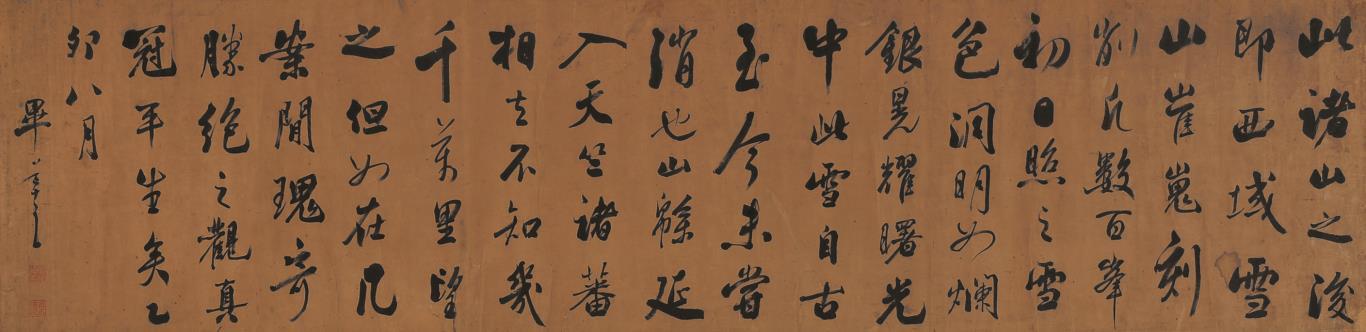 此諸山之後
即西域雪
山崔嵬刻
削凡數百峯
初日照之雪
色洞明如爛
銀晃耀曙光
中此雪自古
至今未嘗
消也山綿延
入天竺諸蕃
相去不知幾
千萬里望
之但如在几
案間瑰奇
勝絕之觀真
冠平生矣乙
卯八月
畢